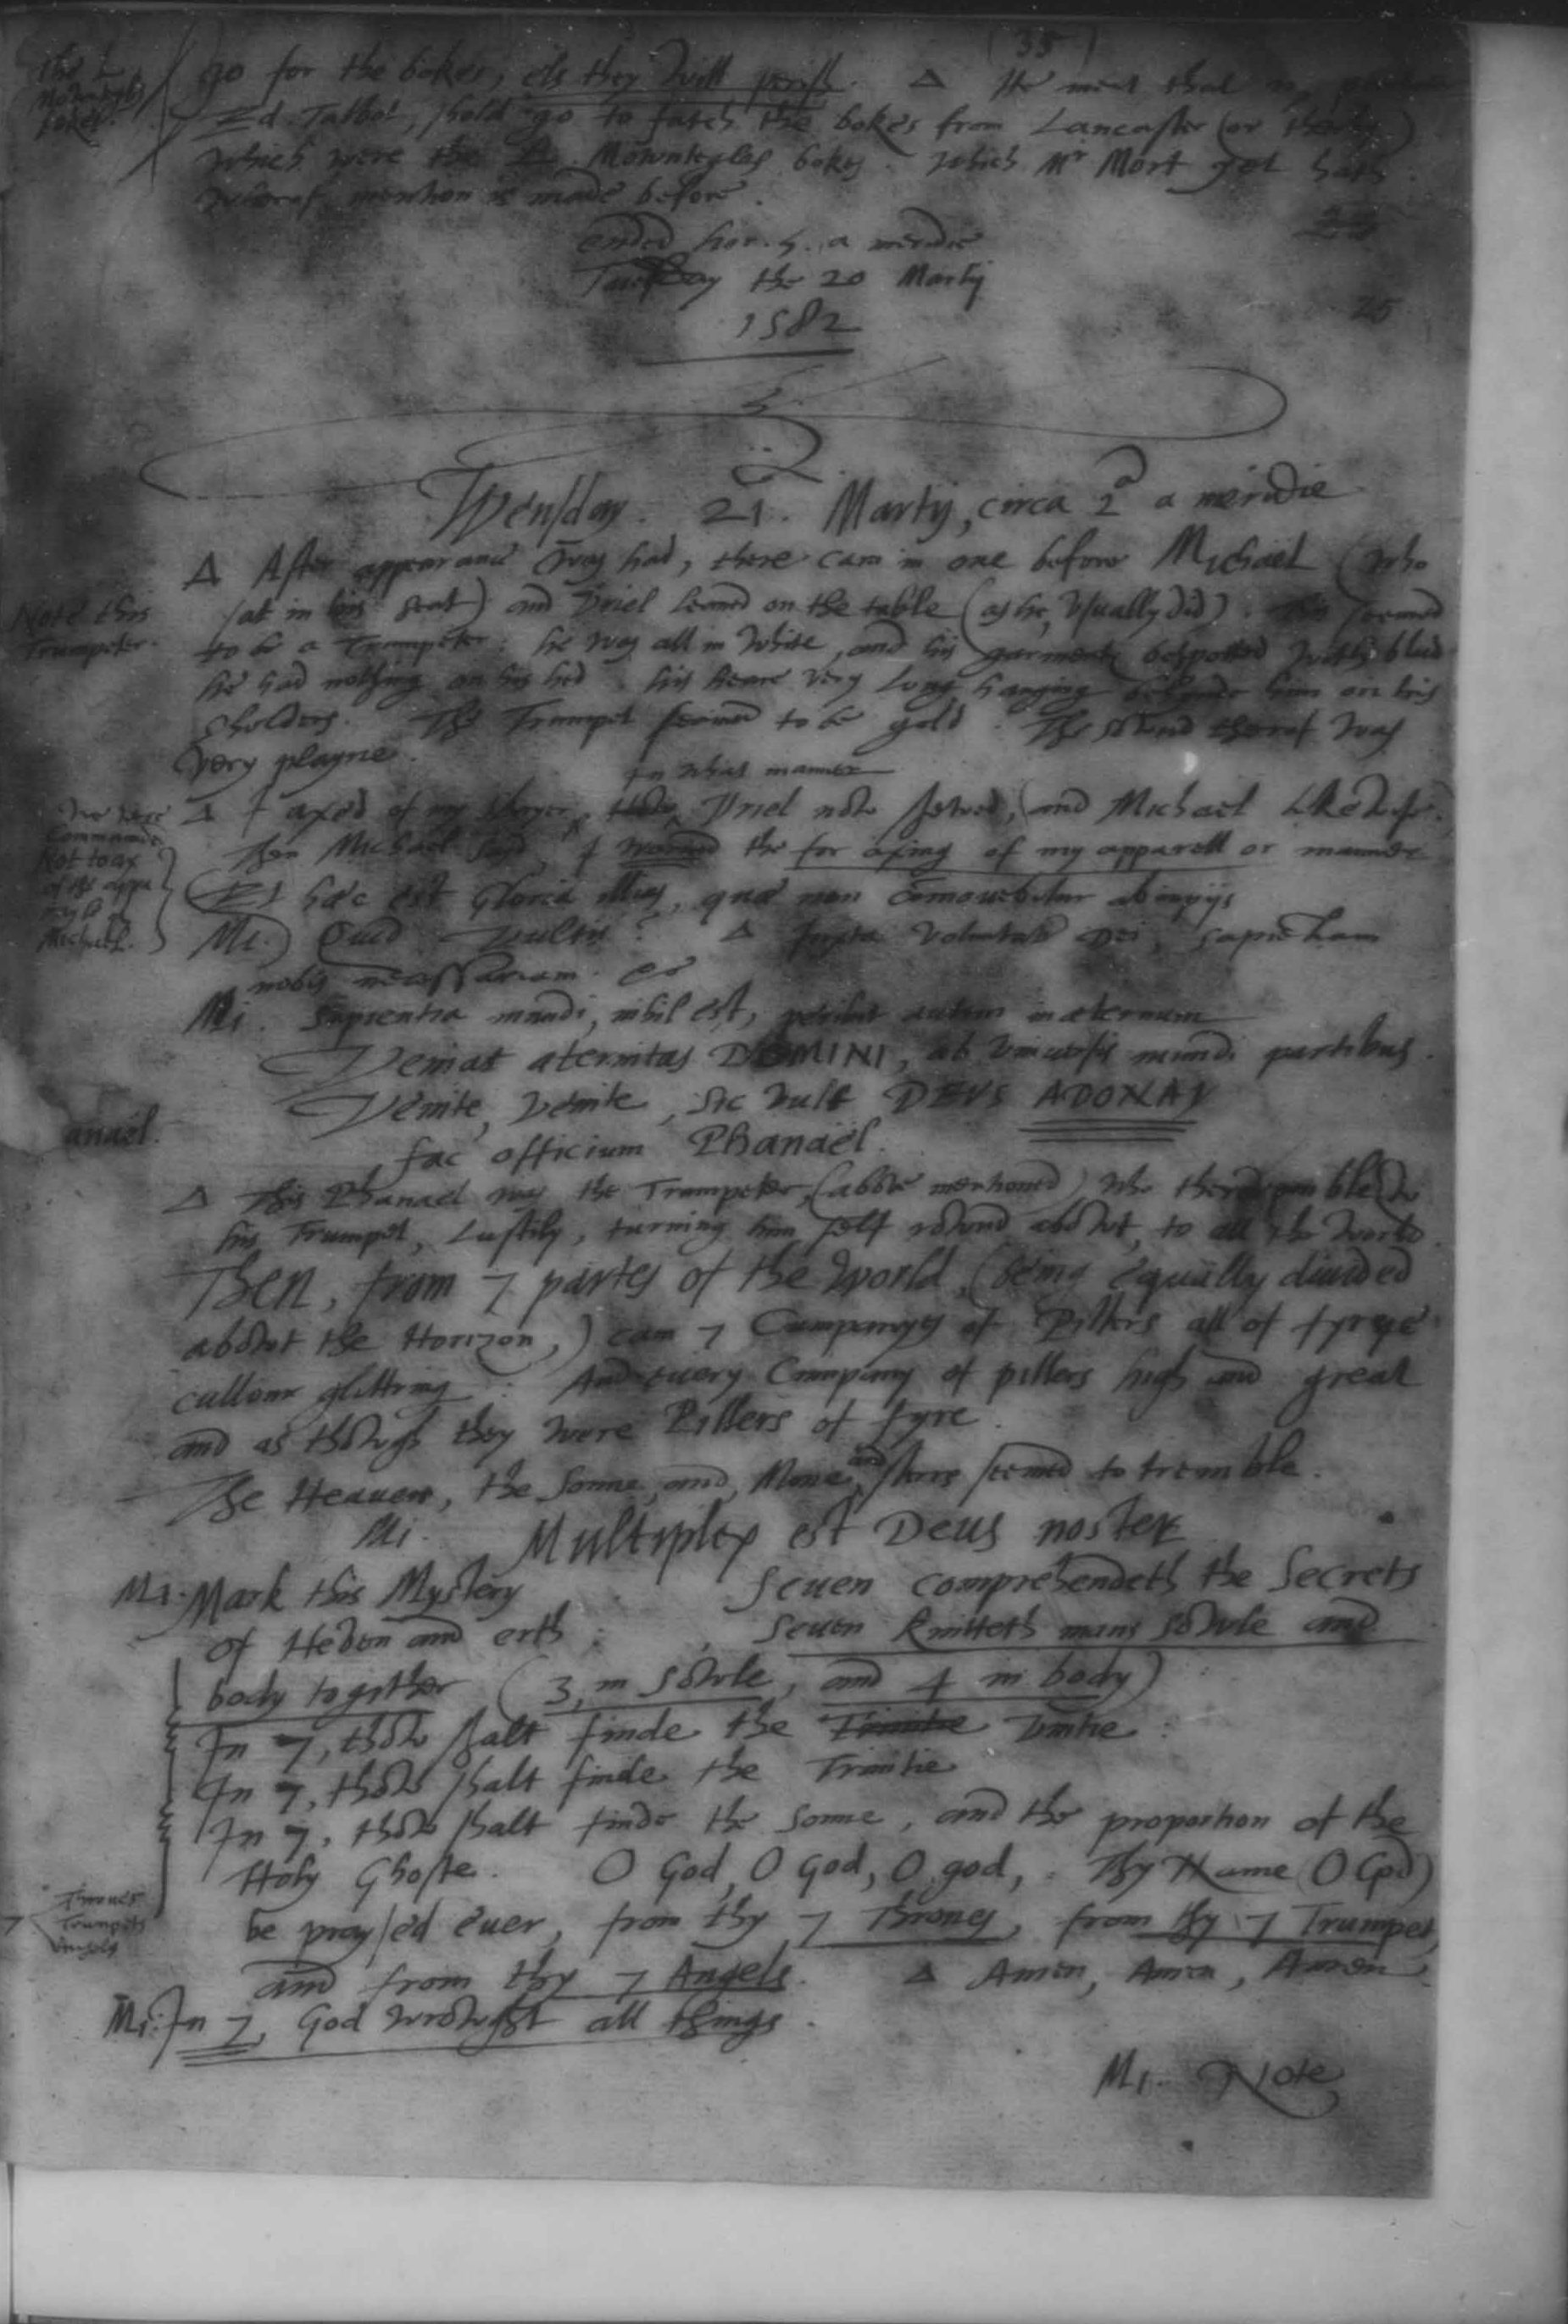 (35)
The L.
Mownteglés
bokes.
go for the bokes, els they will perish. Δ He ment that my
Ed. Talbot, shold go to fatch the bokes from Lancaster (or therby)
which were the L. Mowntegles bokes. which Mr Mort yet hath
wherof mention is made before.
ended hor. 5. a meridie
Tuesday the 20 Martij
1582
Wensday. 21. Martij, circa 2a a meridie
Δ After appearance was had, there cam in one before Michael (who
sat in his seat) and Vriel leaned on the table (as he, vsually did). This seemed
Note this
Trumpeter.
to be a Trumpeter: he was all in white, and his garments bespotted with blud
he had nothing on his hed. his heare very long hanging behynde him on his
sholders. The Trumpet seemed to be gold. The sownd therof was
very playne.
Δ I axed of my skryer, in what manner Vriel now shewed, (and Michael likewise.)
We were
Commanded
Not to ax
of the appa
rayle of
Michael.
Then Michael sayd, I warned the for axing of my apparell or manner
Et haec est Gloria illius, quae non commouebitur ab impijs
Mi.) Quid vultis? Δ Juxta voluntatem Dei, sapientiam
nobis necessariam. &c
Mi. Sapientia mundi, nihil est, peribit autem in aeternum
Veniat aternitas DOMINI, ab vniuersis mundi partibus.
Venite, venite, sic vult DEVS ADONAY
anaël.
fac officium Phanaël.
Δ This Phanael was the Trumpeter, (above mentioned) who therevppon blew
his Trumpet, Lustily, turning him self rownd abowt, to all the world
Then, from 7 partes of the world, (being equally diuided
abowt the Horizon,) cam 7 Cumpanyes of Pillers all of fyrye
cullour glittring. And euery Cumpany of pillers high and great
and as thowgh they were Pillers of fyre.
The Heauen, the Sonne, and, Mone and sterrs seemed to tremble.
Mi. Multiplex est Deus noster
Mi. Mark this Mystery Seuen comprehendeth the Secrets
of Heven and erth: Seuen knitteth mans sowle and
body togither (3, in sowle, and 4 in body)
In 7, thow shalt finde the Trinitie Vnitie:
In 7, thow shalt finde the Trinitie
In 7, thow shalt finde the Sonne, and the proportion of the
Holy Ghoste. O God, O God, O god, Thy Name (O God)
7
Thrones
Trumpets
Angels
be praysed euer, from thy 7 Thrones, from thy 7 Trumpets,
and from thy 7 Angels. Δ Amen, Amen, Amen.
Mi. In 7, God wrowght all things.
Mi. Note